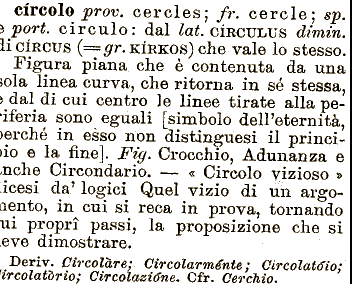 círcolo prov. cercles; fr. cercle; sp.
e port. circulo: dal lat. CÌRCULUS dimin.
di CÌRCUS (= gr. KÌRKOS) che vale lo stesso.
Figura piana che è contenuta da una
sola linea curva, che ritorna in sé stessa,
e dal di cui centro le linee tirate alla pe-
riferia sono eguali [simbolo dell'eternità,
perché in esso non distinguesi il princi-
pio e la fine]. Fig. Crocchio, Adunanza e
anche Circondario. — « Circolo vizioso »
dicesi da' logici Quel vizio di un argo-
mento, in cui si reca in prova, tornando
sui proprî passi, la proposizione che si
deve dimostrare.
Deriv. Circolàre; Circolarménte; Circolatóio;
Circolatòrio; Circolazióne. Cfr. Cerchio.